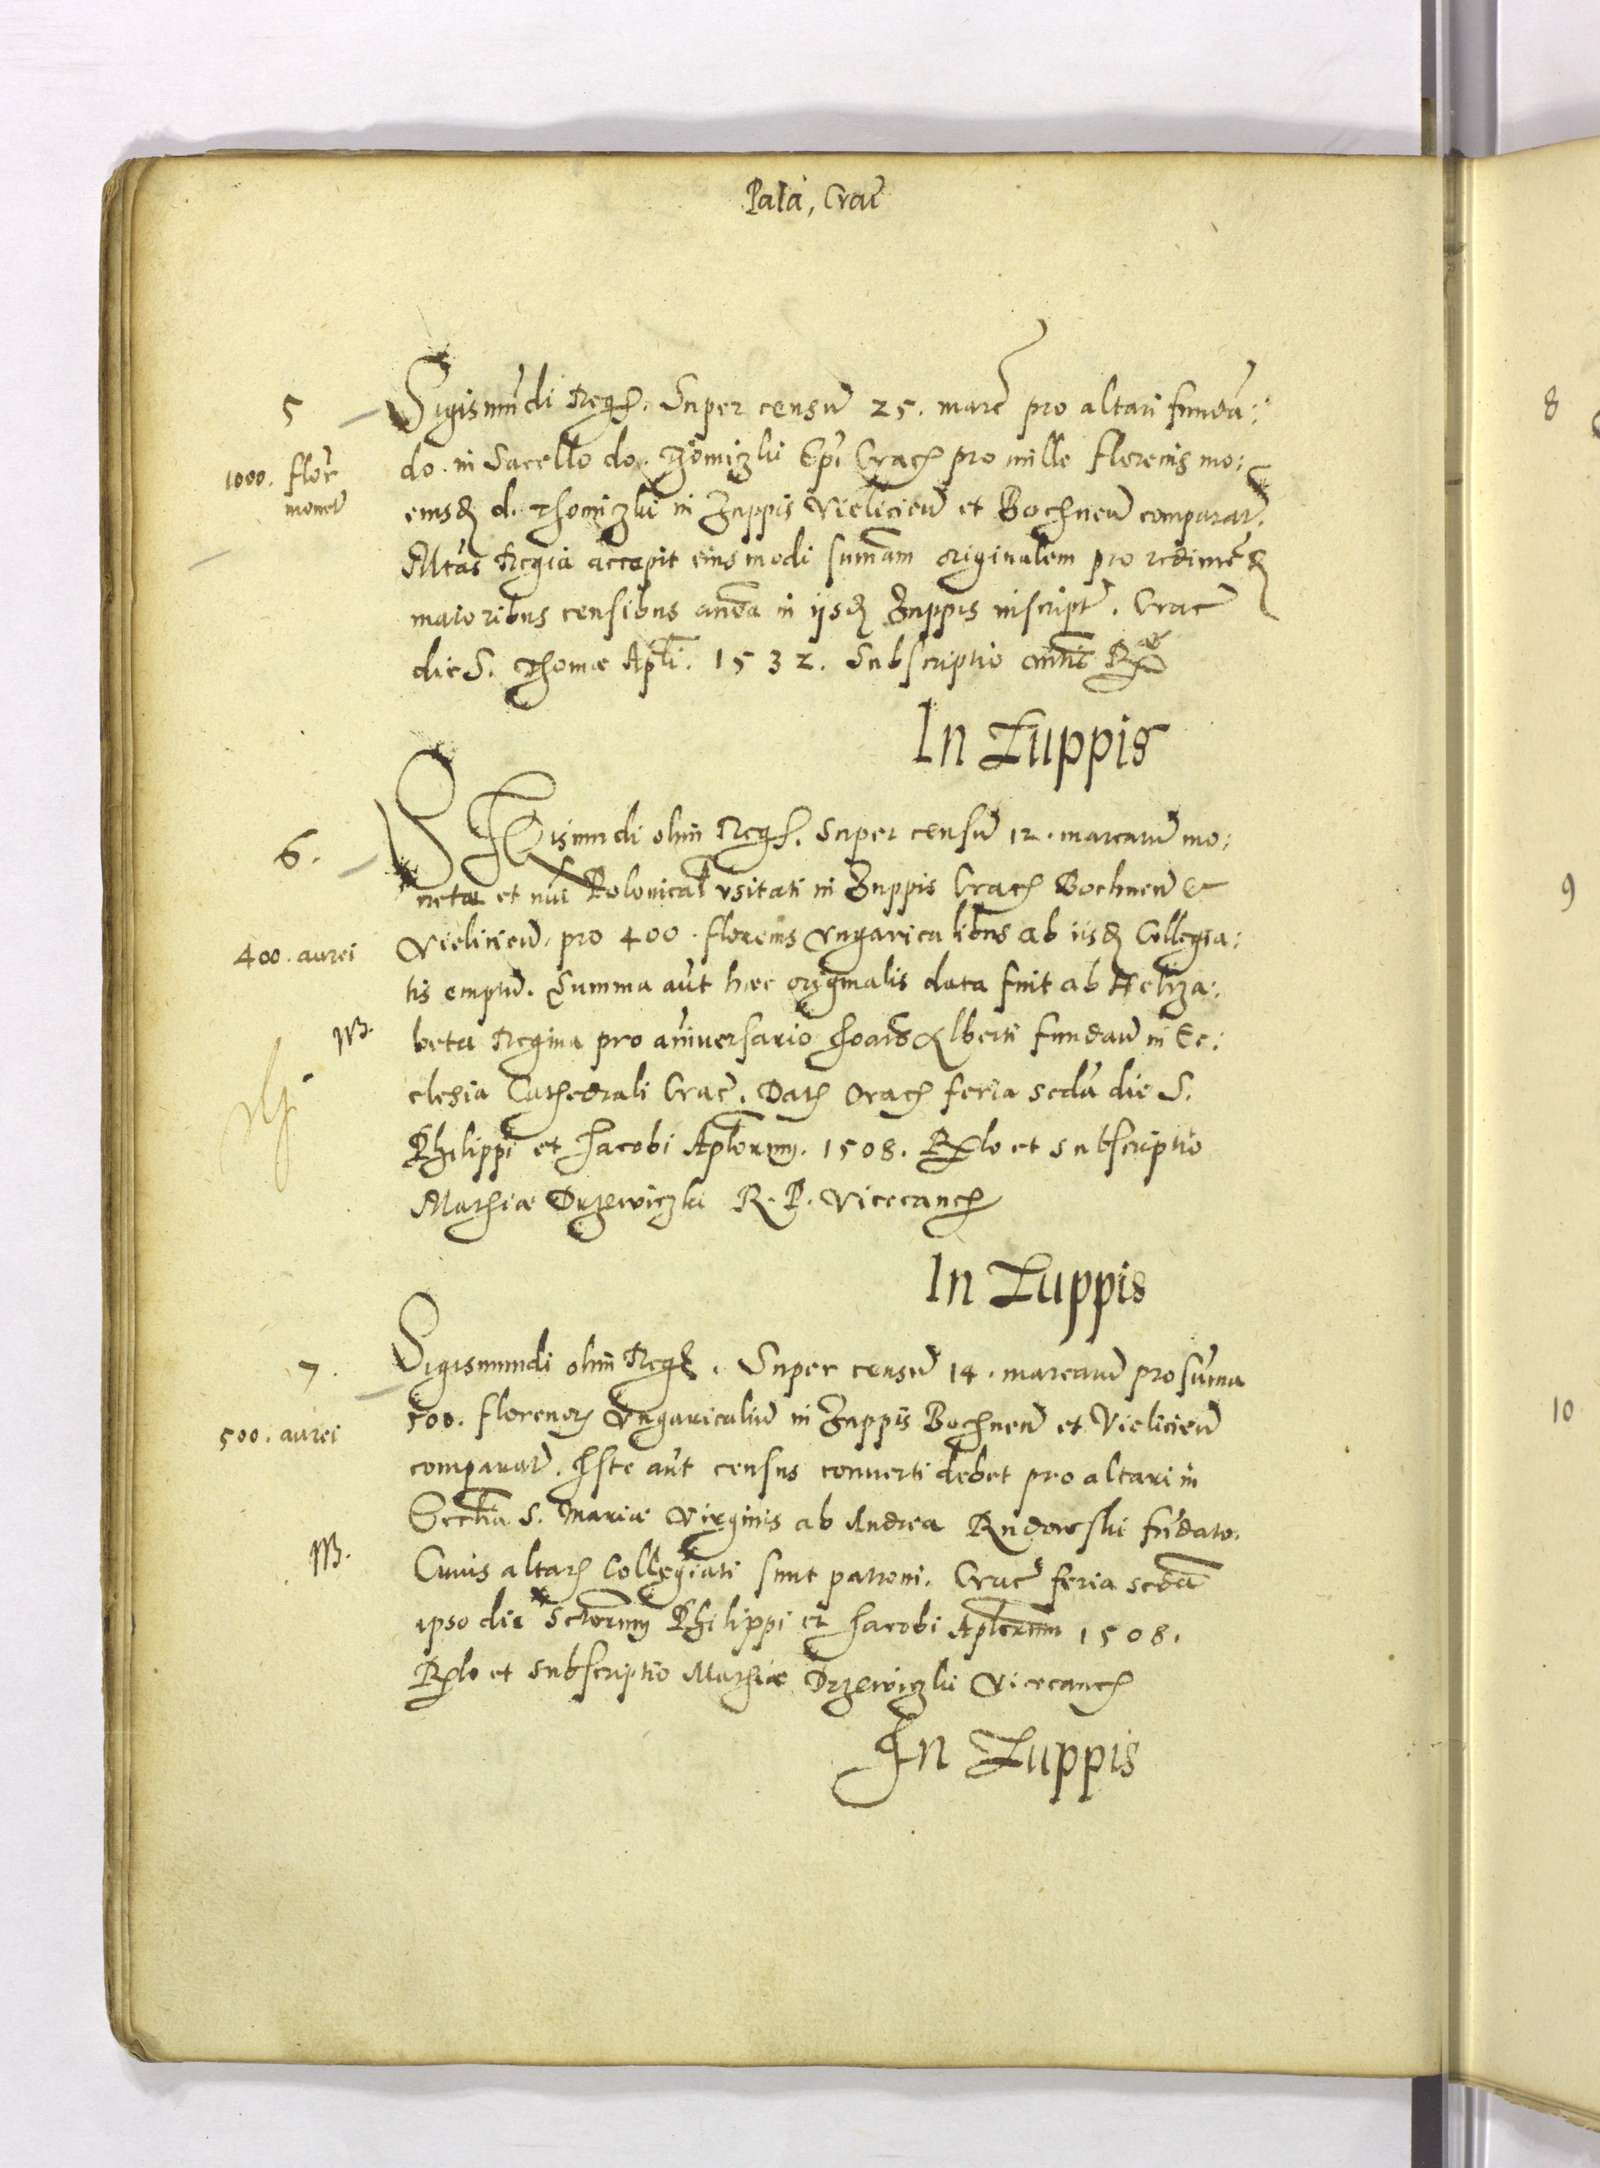 Pala, Crac
5 Sigismūdi Reg. Super censū 25. marc pro altari fundā:
1000. flor monet
do. in Sacello do. Thomizki Epi Crac pro mille florenis mo:
eiusd d. Thomizki in Zuppis Vielicień et Bochneń comparat.
Mtas Regia accepit eiusmodi sumam originalem pro redimēd
maioribus censibus antea in iisd Zuppis inscript. Crac
die S. Thomæ Apli. 1532. Subscriptio
In Zuppis
6. Sigismūdi olim Reg. Super censū 12. marcarū mo:
netæ et nūi Polonical vsitati in Zuppis Crac Bochneń et
400. aurei
Vielicień, pro 400. florenis Vngaricalibus ab iisd Collegia:
tis emptū. Summa aūt hæc originalis data fuit ab Heliza:
NB.
beta Regina pro aniuersario Joānis Alberti fundatū in Ec:
clesia Cathedrali Crac. Dat Crac feria scda die S.
Philippi et Jacobi Aplorum. 1508. Rlo et Subscriptio
Mathiæ Drzewiczki R. P. Vicecanc
In Zuppis
7. Sigismundi olim Reg. Super censū 14. marcarū pro sūma
500. aurei
500. florenor Vngaricaliū in Zuppis Bochneń et Vielicień
comparat. Iste aūt census conuerti debet pro altari in
Ecclia S. Mariæ Virginis ab Andrea Rudowski fūdato.
NB.
Cuius altar Collegiati sunt patroni. Crac feria scda
ipso die Sctorum Philippi et Jacobi Aplorum 1508.
Rlo et Subscriptio Mathiæ Drzewiczki Vicecanc
In Zuppis
8
9
10